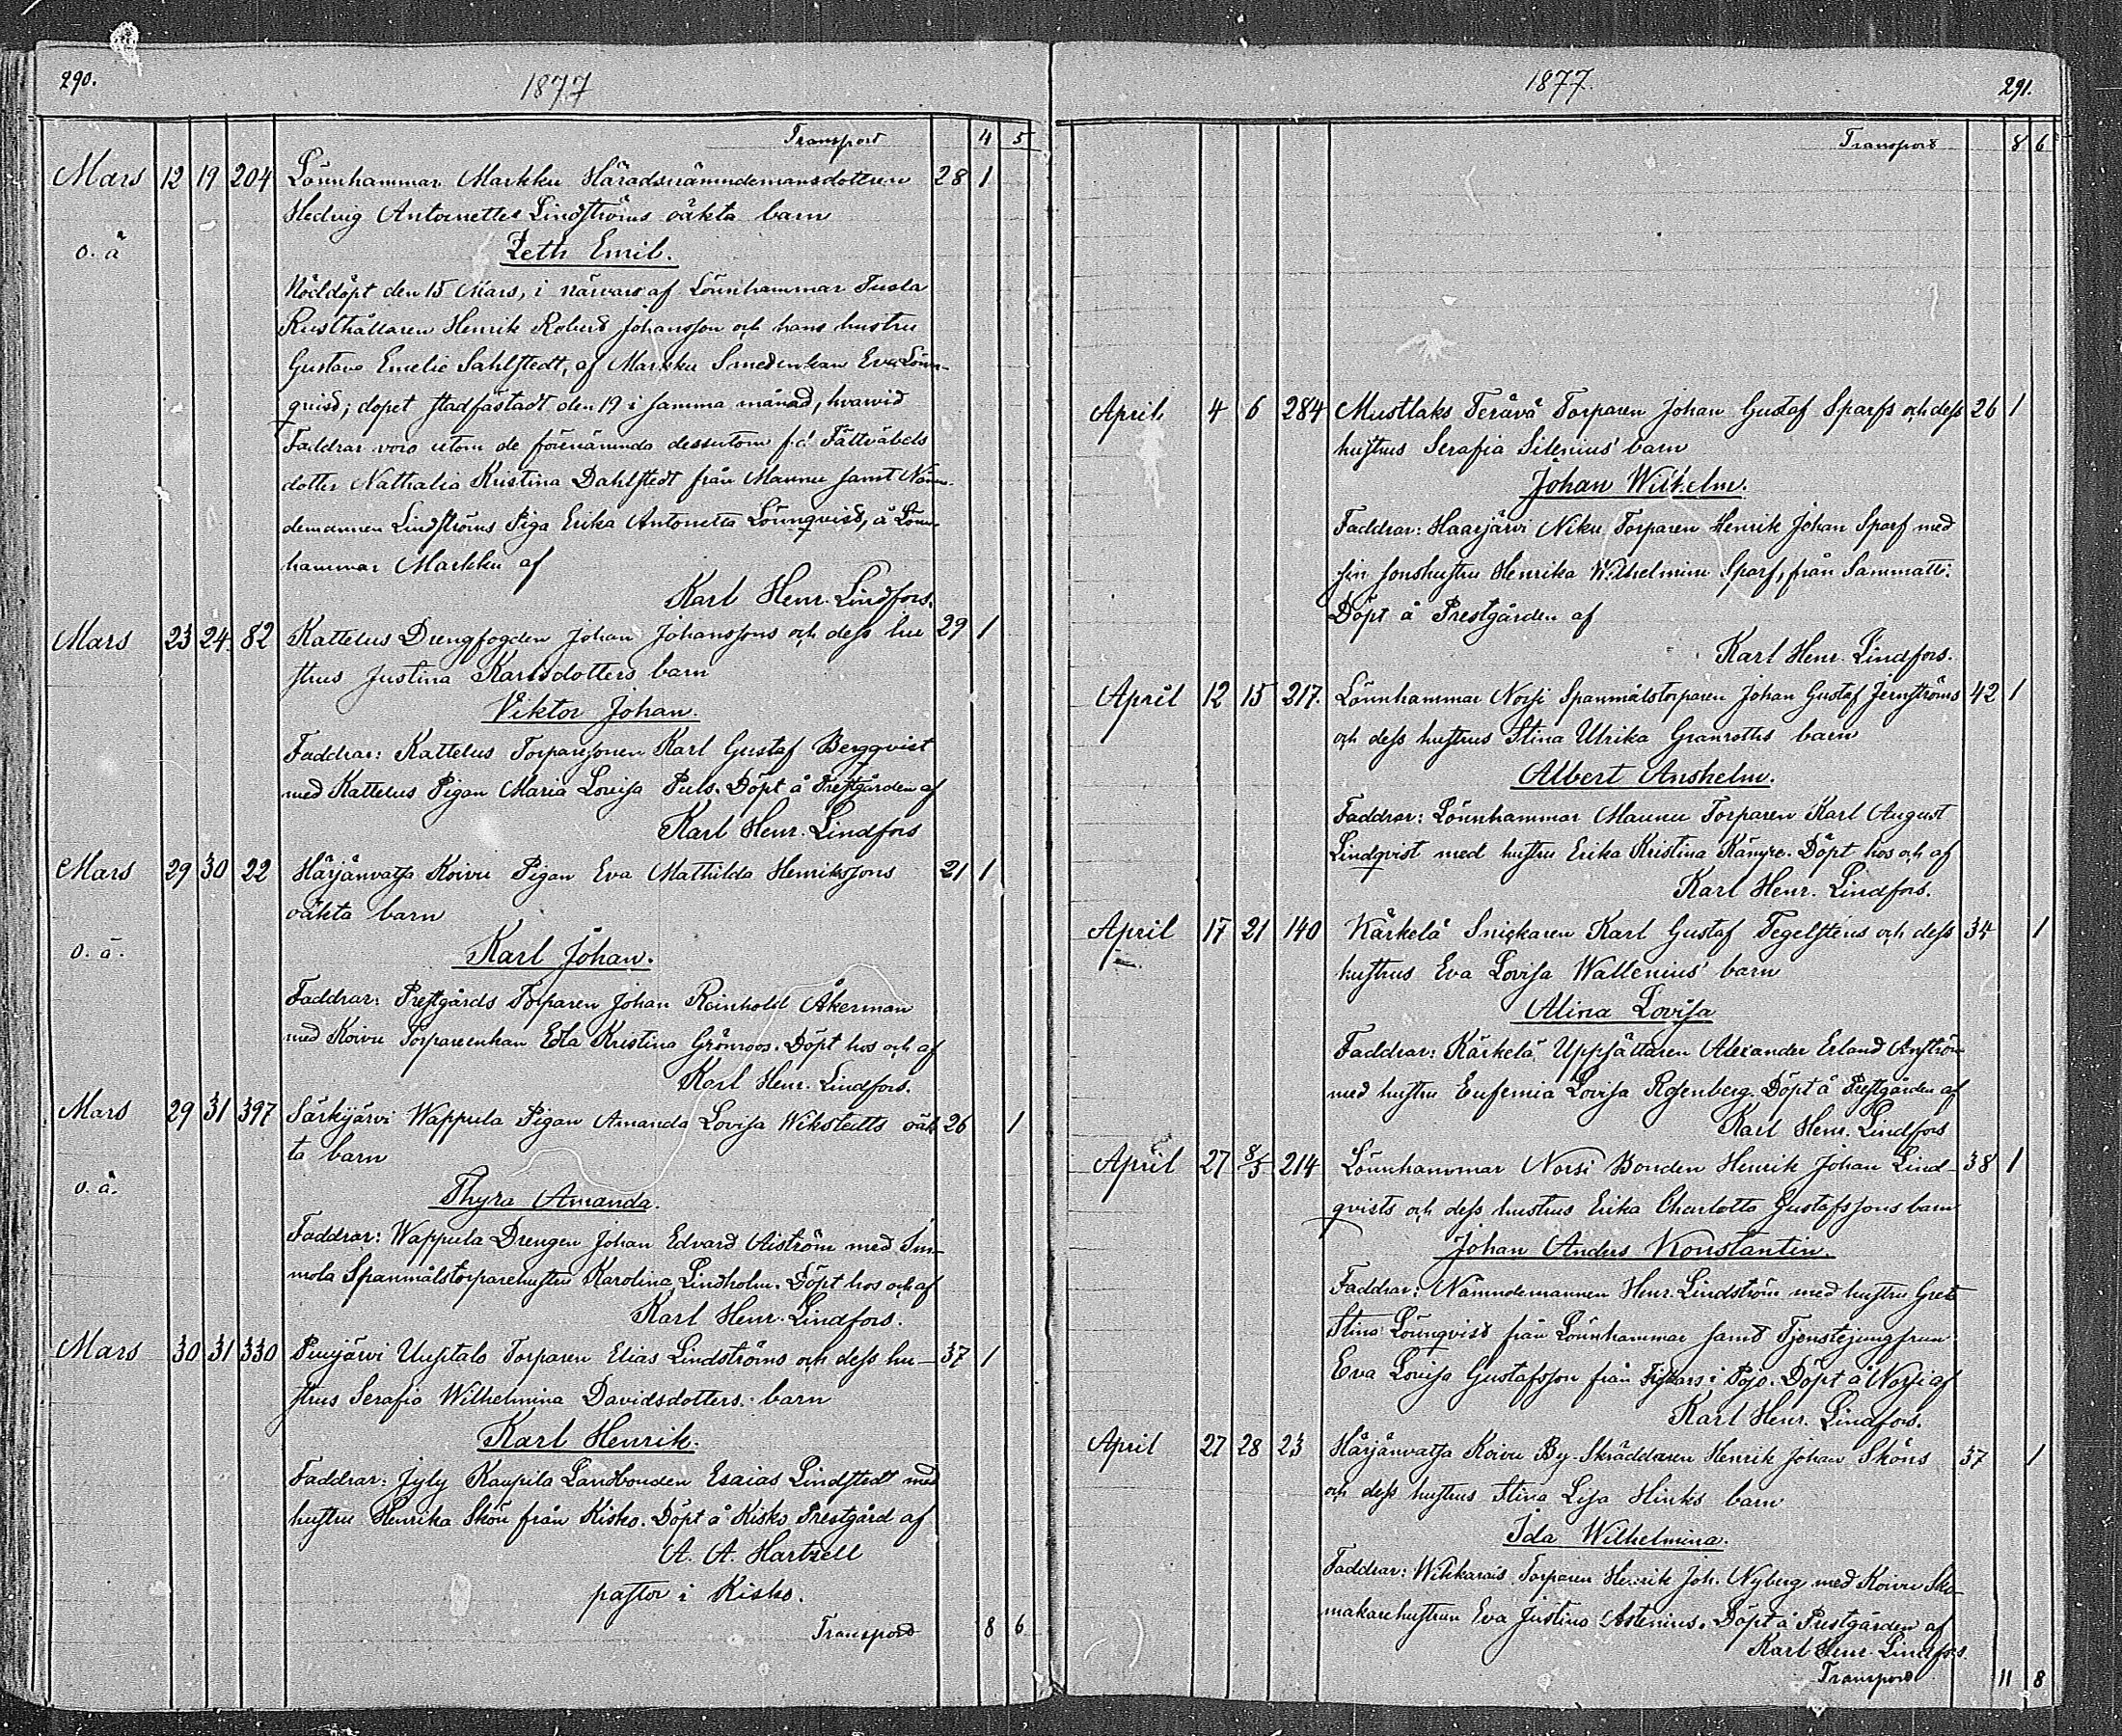 290.
1877
Transport 4 5
Mars 12 19 204 Lönnhammar Markku Häradsnämndemansdottren 28 1
Hedvig Antoinette Lindströms oäkta barn
o. ä
Zeth Emil.
Nöddöpt den 15 Mars, i närvaro af Lönnhammar Tusla
Rusthållaren Henrik Robert Johansson och hans hustru
Gustava Emelie Sahlstedt, af Markku Smedenkan Eva Lönn-
qvist; dopet stadfästadt den 19 i samma månad, hvarvid
Faddrar voro utom de förenämnda dessutom f.d. Fältväbels
dotter Nathalia Kristina Dahlstedt från Maunu samt Näm-
demannen Lindströms Piga Erika Antonetta Lönnqvist, å Lönn-
hammar Markku af
Karl Henr. Lindfors.
Mars 23 24. 82 Kattelus Drengfogden Johan Johanssons och dess hu 29 1
strus Justina Karlsdotters barn
Viktor Johan.
Faddrar: Kattelus Torparesonen Karl Gustaf Bergqvist
med Kattelus Pigan Maria Lovisa Puls. Döpt å Prestgården af
Karl Henr. Lindfors
Mars 29 30 22 Härjänvatsa Koivu Pigan Eva Mathilda Henrikssons 21 1
oäkta barn
o. ä.
Karl Johan.
Faddrar: Prestgårds Torparen Johan Reinhold Åkerman
med Koivu Torpareenkan Edla Kristina Grönroos. Döpt hos och af
Karl Henr. Lindfors.
Mars 29 31 397 Särkijärvi Wappula Pigan Amanda Lovisa Wikstedts oäk 26 1
ta barn
o. ä.
Thyra Amanda.
Faddrar: Wappula Drengen Johan Edvard Aiström med
mola Spanmålstorparehustru Karolina Lindholm. Döpt hos och af
Karl Henr. Lindfors.
Mars 30 31 330 Puujärvi Uusitalo Torparen Elias Lindströms och dess hu- 37 1
strus Serafia Wilhelmina Davidsdotters barn
Karl Henrik.
Faddrar: Jyly Kaupila Landbonden Esaias Lindstedt med
hustru Henrika Skön från Kisko. Döpt å Kisko Prestgård af
A. A. Hartzell
pastor i Kisko.
Transport 8 6
1877.
291.
Transport 8 6
April 4 6 284 Mustlaks Terävä Torparen Johan Gustaf Sparfs och dess 26 1
hustrus Serafia Silenius' barn
Johan Wilhelm.
Faddrar: Haarjärvi Niku Torparen Henrik Johan Sparf med
sin sonshustru Henrika Wilhelmina Sparf, från Sammatti.
Döpt å Prestgården af
Karl Henr. Lindfors.
April 12 15 217. Lönnhammar Norsi Spanmålstorparen Johan Gustaf Jernströms 42 1
och dess hustrus Stina Ulrika Granroths barn
Albert Anshelm.
Faddrar: Lönnhammar Maunu Torparen Karl August
Lindqvist med hustru Erika Kristina. Döpt hos och af
Karl Henr. Lindfors.
April 17 21 140 Kärkelä Snickaren Karl Gustaf Tegelstens och dess 34 1
hustrus Eva Lovisa Wallenius' barn
Alina Lovisa
Faddrar: Kärkelä Uppsättaren Alexander Erland
med hustru Eufemia Lovisa Rosenberg. Döpt å Prestgården af
Karl Henr. Lindfors
April 27 8/5 214 Lönnhammar Norsi Bonden Henrik Johan Lind- 38 1
qvists och dess hustrus Erika Charlotta Gustafssons barn
Johan Anders Konstantin.
Faddrar: Nämndemannen Henr. Lindström med hustru Greta
Stina Lönnqvist från Lönnhammar samt Tjenstejungfrun
Eva Lovisa Gustafsson från Fiskars i Pojo. Döpt å Norsi af
Karl Henr. Lindfors.
April 27 28 23 Härjänvatsa Koivu By-Skräddaren Henrik Johan Sköns 37 1
och dess hustrus Stina Lisa Hinks barn
Ida Wilhelmina.
Faddrar: Torparen Henrik Joh. Nyberg med Koivu Sko-
makarehustrun Eva Justina Astenius. Döpt å Prestgården af
Karl Henr. Lindfors.
Transport 11 8